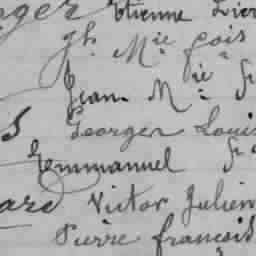 oger Etienne Pier
gh. Mie fois
Jean Mie fr
s Georges Louis
Emmanuel fr
ard Victor Julien
Pierre françois